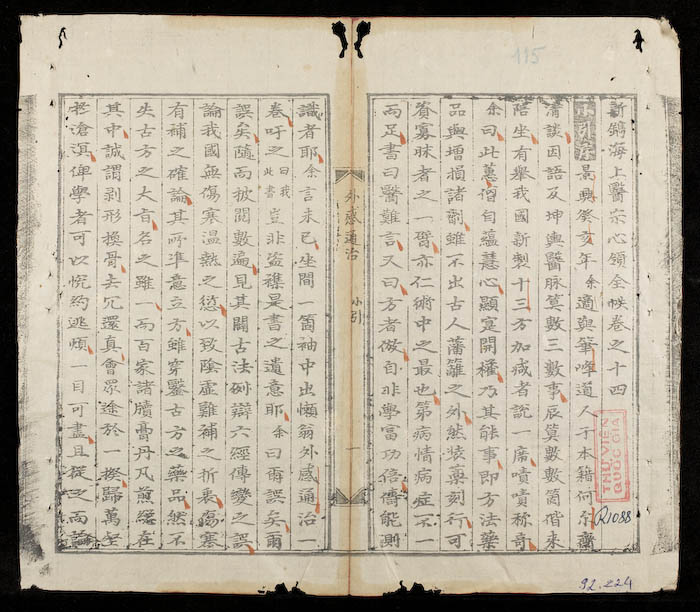 115
新鐫海上醫宗心領全帙卷之十四
小引
景興癸亥年余適與筆峰道人于本籍何尔齋
清談因語及坤輿醫脉算數三數事辰算數數箇偕來
陪坐有舉我國新製十三方加咸者說一席嘖嘖称奇
余曰此蕙僧自蘊慧心顯寔開權乃其能事即方法藥
品與增損諸劑雖不出古人藩籬之外然裝藁刻行可
資寡昧者之一臂亦仁術中之最也第病情病症不一
而足書曰醫難言又曰方者倣自非學富功倍儔能測
外感通治
小引
一
識者耶余言未已坐間一箇袖中出懶翁外感通治一
卷吁之曰我此書豈非盜襟是書之遺意耶余曰爾誤矣爾
誤矣隨而披閱數遍見其闢古法例辯六經傳變之誤
論我國無傷寒溫熱之愆以致陰虛難補之折衷傷寒
有補之確論其所準意立方雖穿鑿古方之藥品然不
失古方之大旨名之雖一而百家諸牘膏丹凡煎繆在
其中誠謂剥形換骨去冗還真會眾途於一揆歸萬壑
扵滄溟俾學者可以悦約逃煩一目可盡且捴之而論
THƯ VIỆN
QUỐC GIA
R.1088
92.224